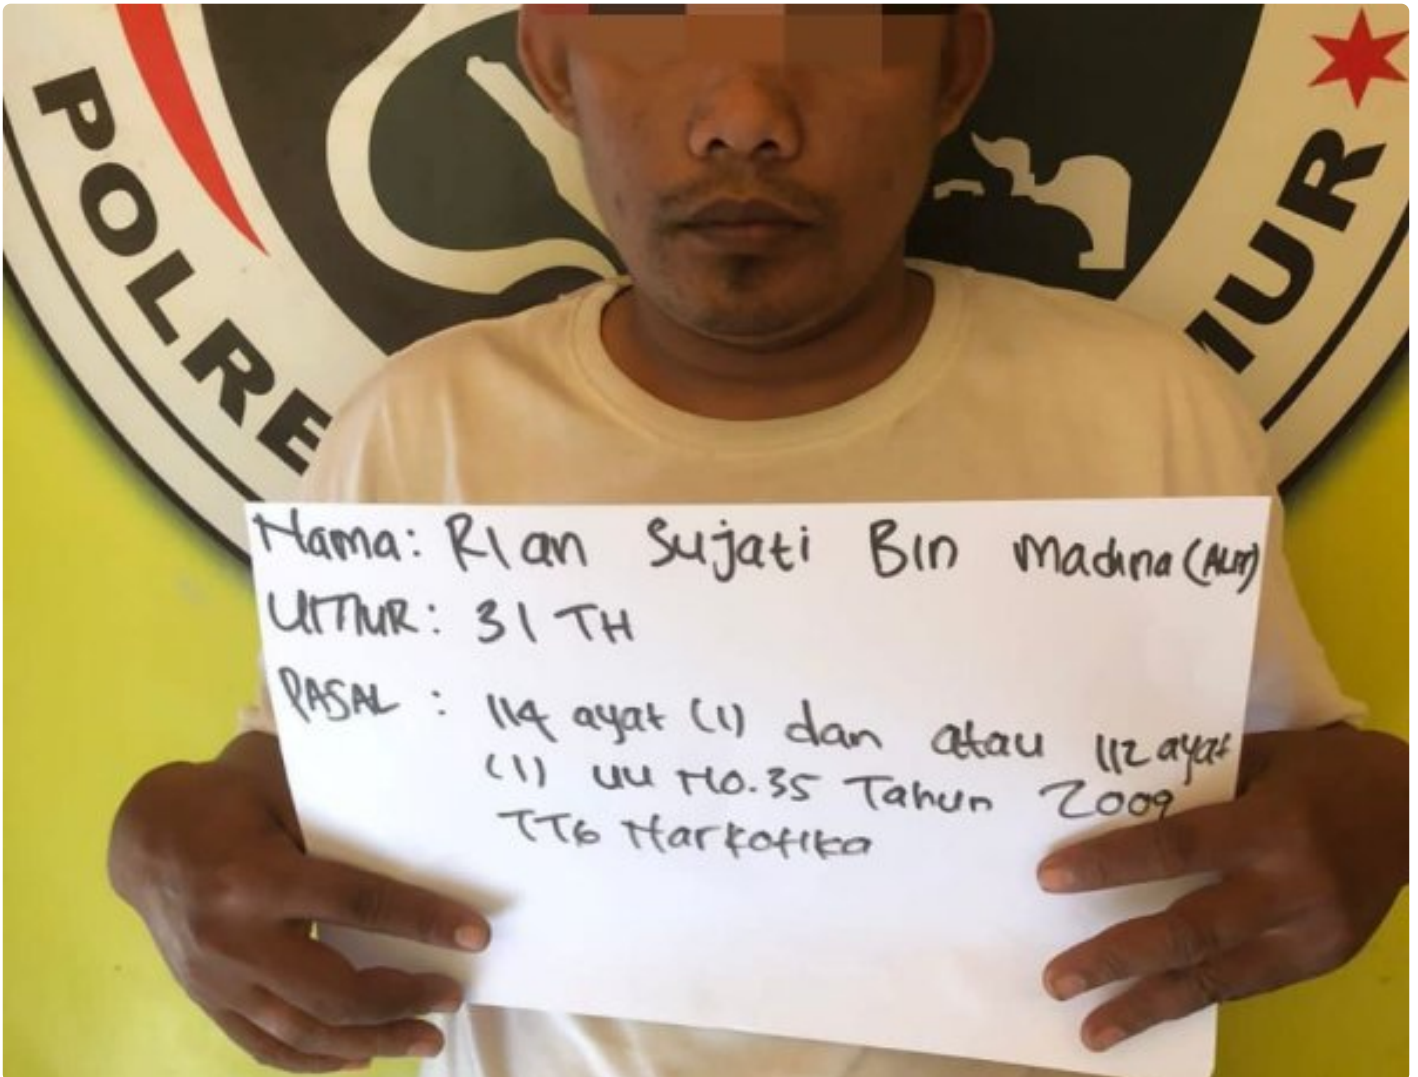 POLRE
MUR
Nama: Rian Sujati Bin Madina (Alm)
UMUR: 31 TH
PASAL : 114 ayat (1) dan atau 112 ayat
(1) UU No.35 Tahun 2009
TTG Narkotika